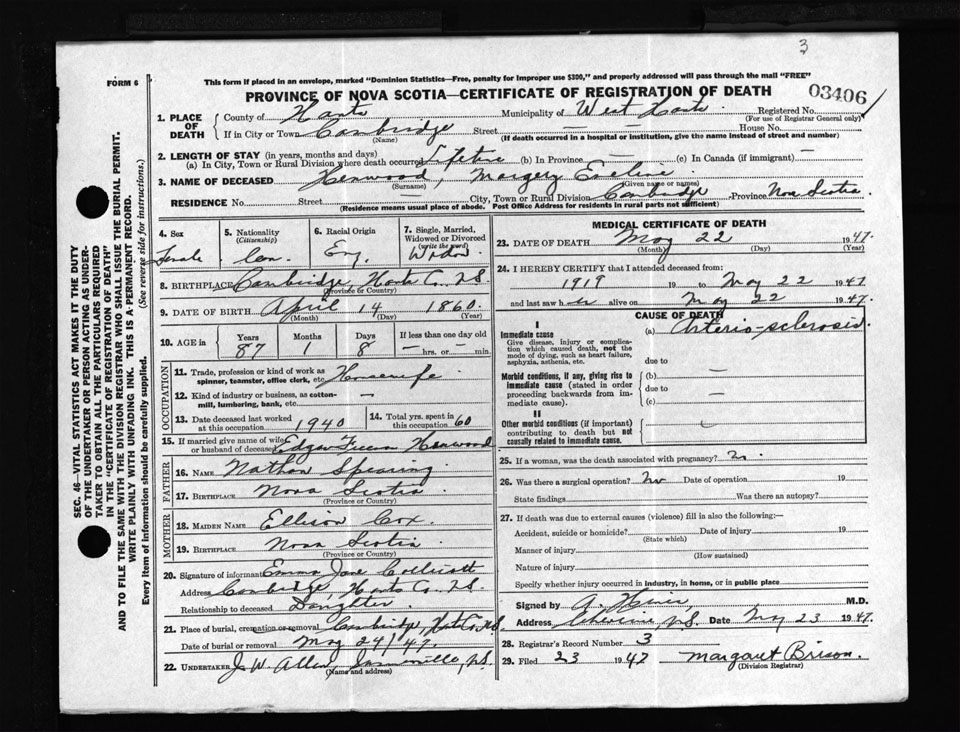 3
FORM 6
This form if placed in an envelope, marked "Dominion Statistics—Free, penalty for improper use $300," and properly addressed will pass through the mail "FREE"
PROVINCE OF NOVA SCOTIA—CERTIFICATE OF REGISTRATION OF DEATH
03406
1. PLACE OF DEATH
County of Hants Municipality of West Hants Registered No.
(For use of Registrar General only)
If in City or Town Cambridge Street — House No.
(Name) (If death occurred in a hospital or institution, give the name instead of street and number)
2. LENGTH OF STAY (in years, months and days)
(a) In City, Town or Rural Division where death occurred Lifetime (b) In Province — (c) In Canada (if immigrant) —
3. NAME OF DECEASED Henwood, Margery Eveline
(Surname) (Given name or names)
RESIDENCE No. Street City, Town or Rural Division Cambridge Province Nova Scotia.
(Residence means usual place of abode. Post Office Address for residents in rural parts not sufficient)
4. Sex Female
5. Nationality (Citizenship) Can.
6. Racial Origin Eng.
7. Single, Married, Widowed or Divorced (write the word) Widow
8. BIRTHPLACE Cambridge Hants Co. N.S.
(Province or Country)
9. DATE OF BIRTH April 14 1860
(Month) (Day) (Year)
10. AGE in Years 87 Months 1 Days 8 If less than one day old — hrs. or — min.
OCCUPATION
11. Trade, profession or kind of work as spinner, teamster, office clerk, etc. Housewife
12. Kind of industry or business, as cotton-mill, lumbering, bank, etc. —
13. Date deceased last worked at this occupation 1940
14. Total yrs. spent in this occupation 60
15. If married give name of wife or husband of deceased Edgar Henwood
FATHER
16. NAME Nathan Spearing
17. BIRTHPLACE Nova Scotia
(Province or Country)
MOTHER
18. MAIDEN NAME Ellison Cox.
19. BIRTHPLACE Nova Scotia
(Province or Country)
20. Signature of informant Emma Jane
Address Cambridge, Hants Co. N.S.
Relationship to deceased Daughter
21. Place of burial, cremation or removal Cambridge, Hants Co. N.S.
Date of burial or removal May 24/47.
22. UNDERTAKER J. W. Allen, N.S.
(Name and address)
MEDICAL CERTIFICATE OF DEATH
23. DATE OF DEATH May 22 1947.
(Month) (Day) (Year)
24. I HEREBY CERTIFY that I attended deceased from:
1919 19 to May 22 1947
and last saw her alive on May 22 1947.
CAUSE OF DEATH
I
Immediate cause (a) Arterio-sclerosis.
Give disease, injury or complication which caused death, not the mode of dying, such as heart failure, asphyxia, asthenia, etc.
due to
Morbid conditions, if any, giving rise to immediate cause (stated in order proceeding backwards from immediate cause).
(b) —
due to
(c) —
II
Other morbid conditions (if important) contributing to death but not causally related to immediate cause.
25. If a woman, was the death associated with pregnancy? No.
26. Was there a surgical operation? No Date of operation 19
State findings Was there an autopsy?
27. If death was due to external causes (violence) fill in also the following:—
Accident, suicide or homicide? Date of injury 19
(State which)
Manner of injury
(How sustained)
Nature of injury
Specify whether injury occurred in industry, in home, or in public place
Signed by A. M.D.
Address N.S. Date May 23 1947.
28. Registrar's Record Number 3
29. Filed 23 1947 Margaret Brison.
(Division Registrar)
SEC. 46—VITAL STATISTICS ACT MAKES IT THE DUTY
OF THE UNDERTAKER OR PERSON ACTING AS UNDER-
TAKER TO OBTAIN ALL THE PARTICULARS REQUIRED
IN THE "CERTIFICATE OF REGISTRATION OF DEATH"
AND TO FILE THE SAME WITH THE DIVISION REGISTRAR WHO SHALL ISSUE THE BURIAL PERMIT.
WRITE PLAINLY WITH UNFADING INK. THIS IS A PERMANENT RECORD.
Every item of information should be carefully supplied. (See reverse side for instructions.)